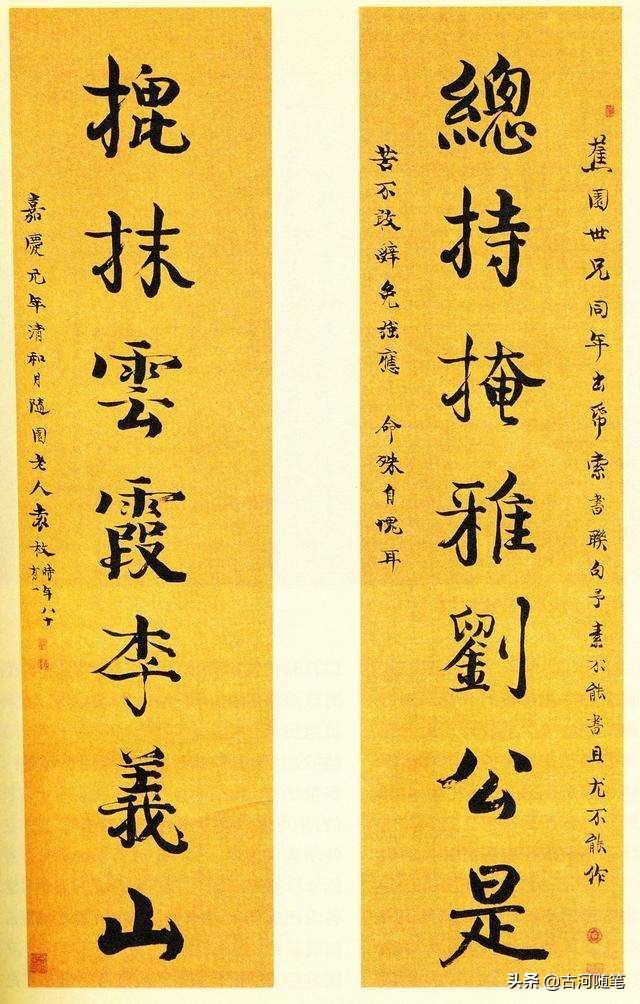 蕉園世兄同年出帋索書聯句予素不能書且尤不能作
總持掩雅劉公是
苦不敢辭免強應 命殊自愧耳
抹雲霞李義山
嘉慶元年清和月隨園老人袁枚時年八十
有一
头条 @古河随笔